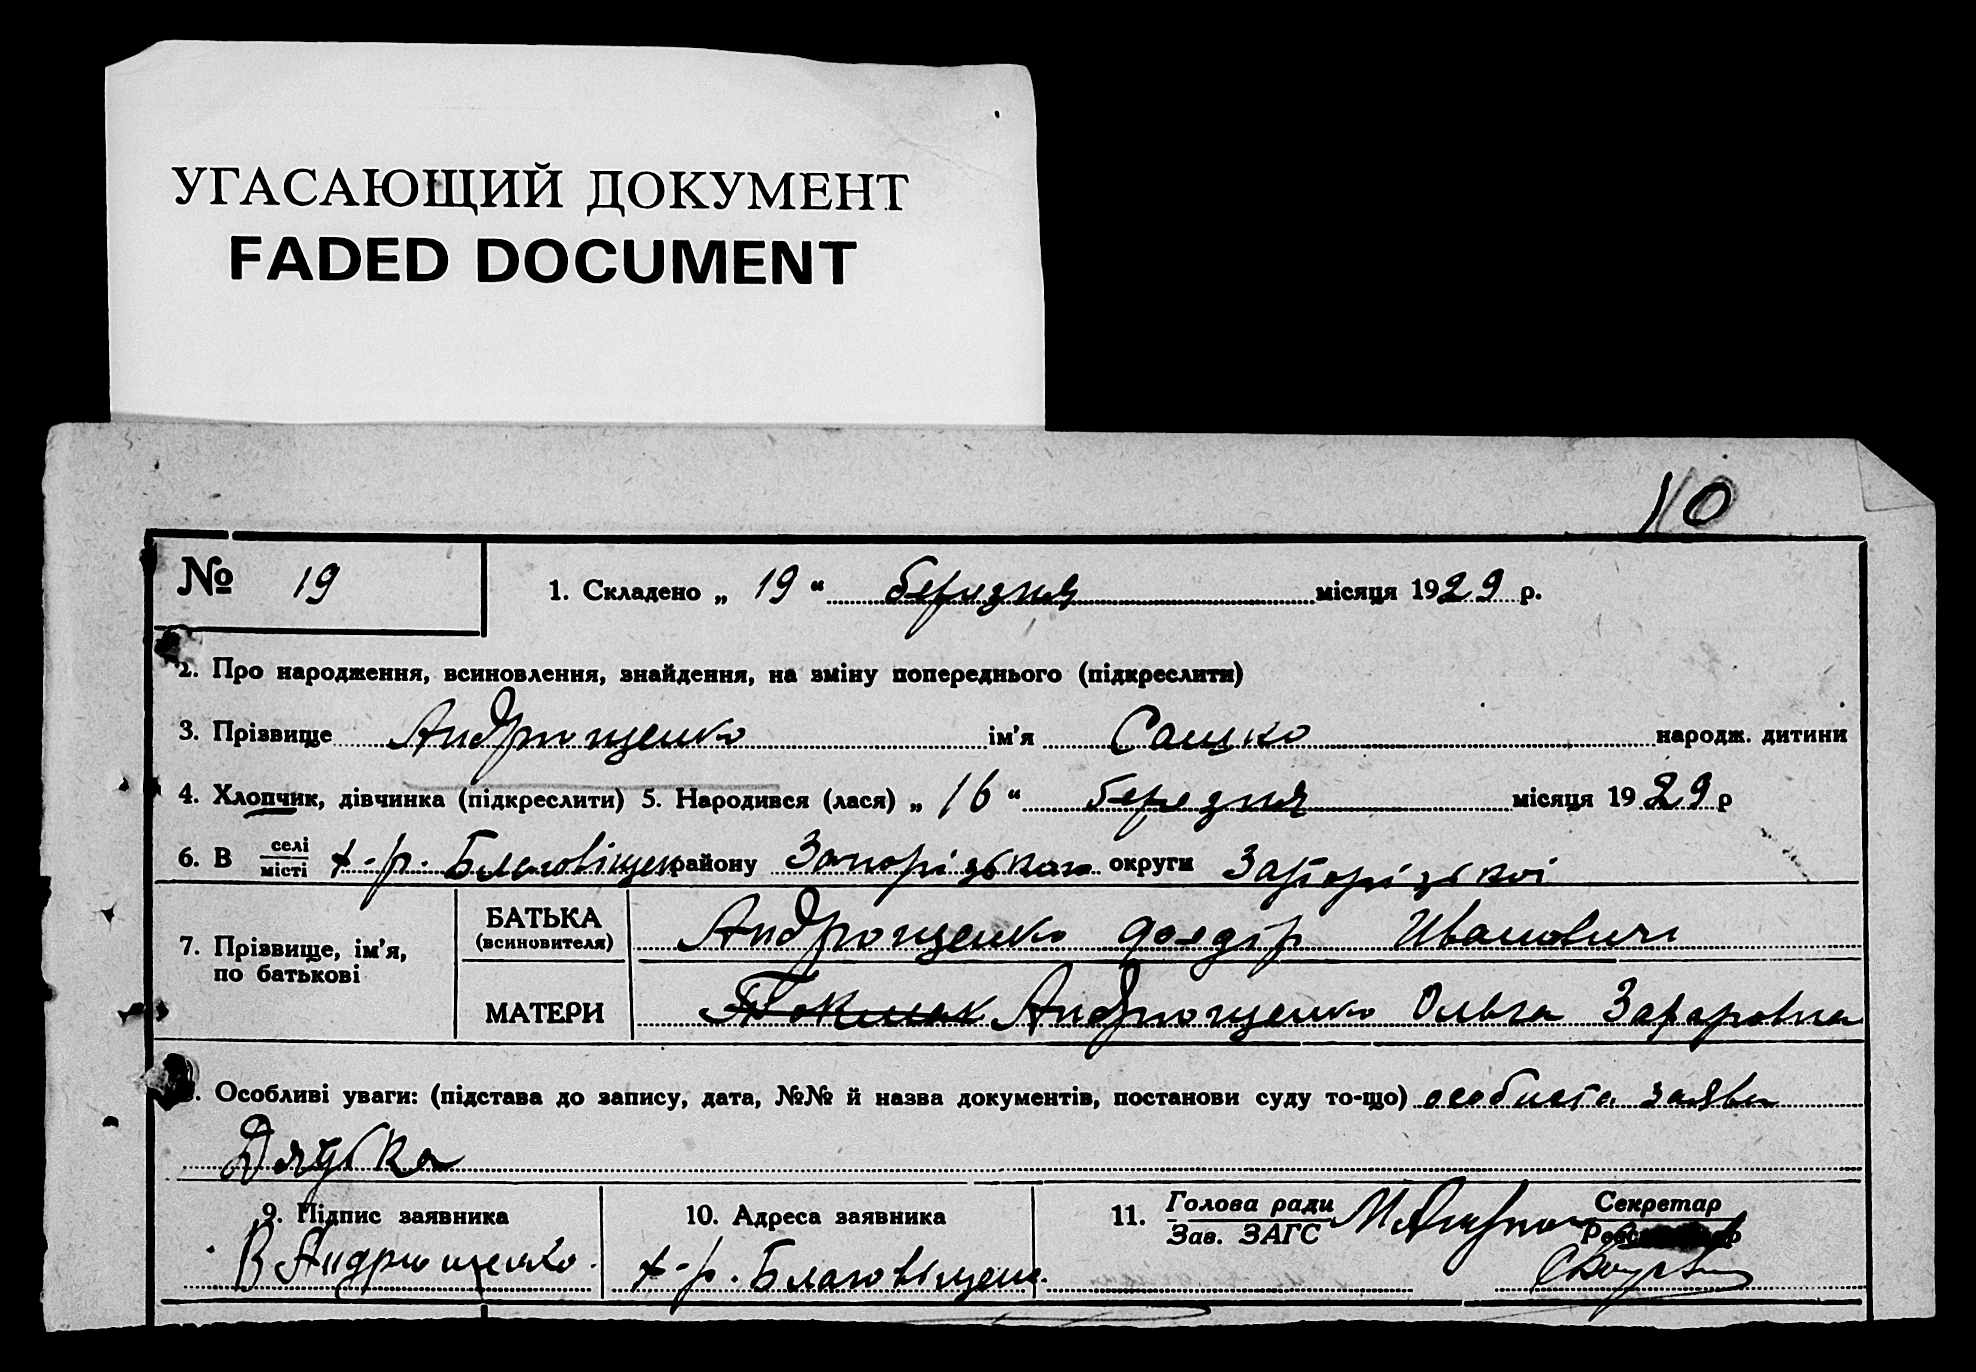 УГАСАЮЩИЙ ДОКУМЕНТ
FADED DOCUMENT
10
№ 19
1. Складено „ 19 “ березня місяця 1929 р.
2. Про народження, всиновлення, знайдення, на зміну попереднього (підкреслити)
3. Прізвище Андрющенко ім'я Сашко народж. дитини
4. Хлопчик, дівчинка (підкреслити) 5. Народився (лася) „ 16 “ березня місяця 1929 р
6. В селі місті х-р. Благовіщен. району Запорізького округи Запорізької
7. Прізвище, ім'я, по батькові
БАТЬКА (всиновителя) Андрющенко Иванович
МАТЕРИ Андрющенко Ольга Захаровна
8. Особливі уваги: (підстава до запису, дата, №№ й назва документів, постанови суду то-що) особиста заява
Дядька
9. Підпис заявника 10. Адреса заявника 11. Голова ради Секретар
Зав. ЗАГС
В Андрющенко. х-р. Благовіщен.